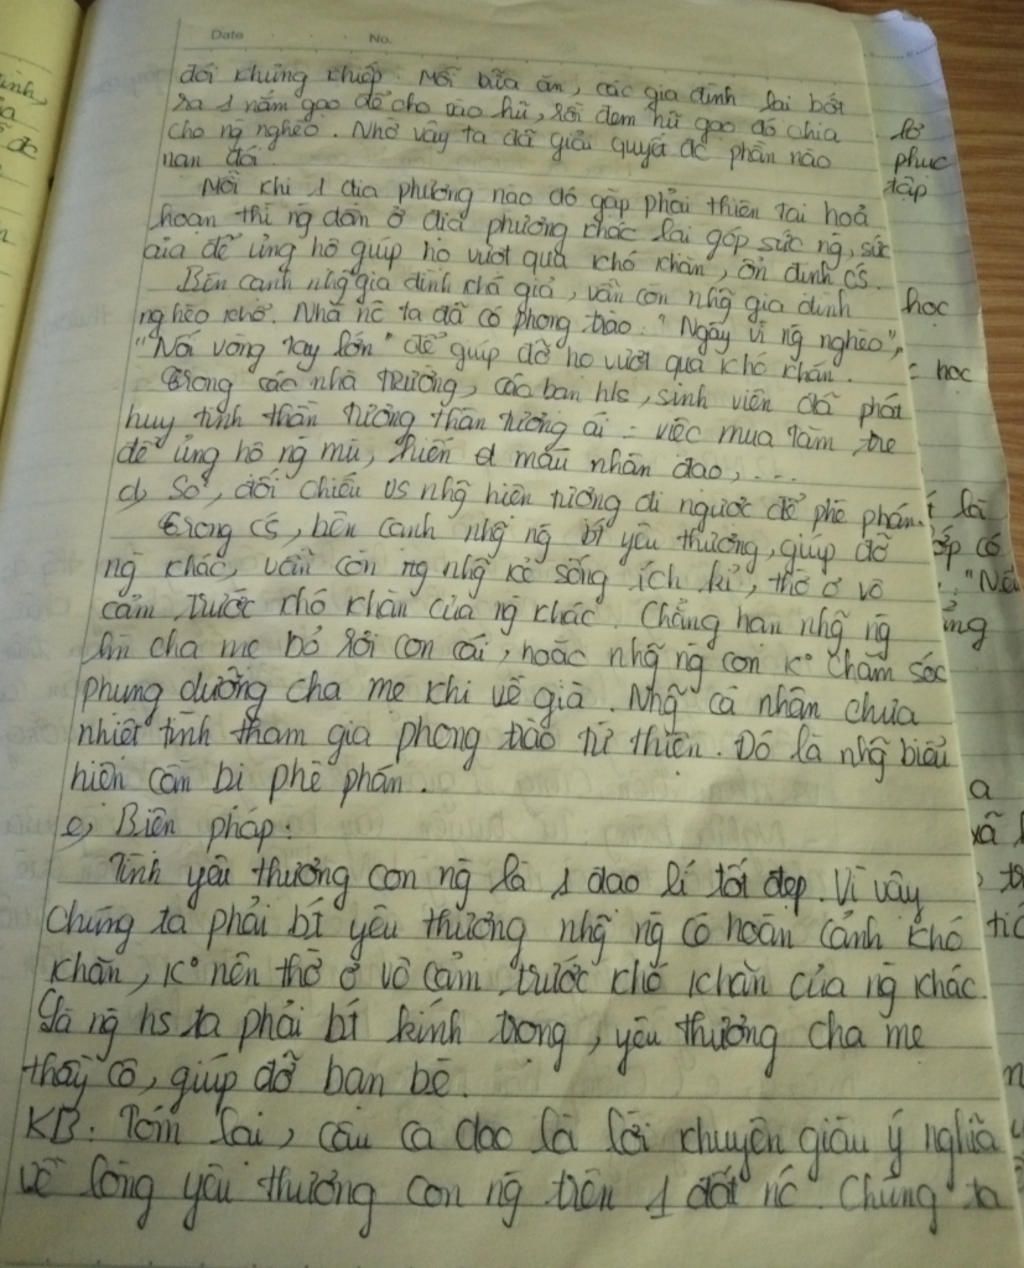 Date No.
đói khủng khiếp. Mỗi bữa ăn, các gia đình lại bớt
ra 1 nắm gạo để cho vào hũ, rồi đem hũ gạo đó chia
cho ng nghèo. Nhờ vậy ta đã giải quyết đc phần nào
nạn đói.
Mỗi khi 1 địa phương nào đó gặp phải thiên tai hoả
hoạn thì ng dân ở địa phương khác lại góp sức ng, sức
của để ủng hộ giúp họ vượt quá khó khăn, ổn định cs.
Bên cạnh nhg gia đình khá giả, vẫn còn nhg gia đình
nghèo khổ. Nhà nc ta đã có phong trào: "Ngày vì ng nghèo",
"Nối vòng tay lớn" để giúp đỡ họ vượt quá khó khăn.
Trong các nhà trường, các bạn hs, sinh viên đã phát
huy tinh thần tương thân tương ái = việc mua tăm tre
để ủng hộ ng mù, hiến máu nhân đạo, ...
d, So, đối chiếu vs nhg hiện tượng đi ngược để phê phán.
Trong cs, bên cạnh nhg ng bt yêu thương, giúp đỡ
ng khác, vẫn còn ng nhg kẻ sống ích kỉ, thờ ơ vô
cảm trước khó khăn của ng khác. Chẳng hạn nhg ng
làm cha mẹ bỏ rơi con cái, hoặc nhg ng con k° chăm sóc
phụng dưỡng cha mẹ khi về già. Nhg cá nhân chưa
nhiệt tình tham gia phong trào từ thiện. Đó là nhg biểu
hiện cần bị phê phán.
e, Biện pháp:
Tình yêu thương con ng là 1 đạo lí tốt đẹp. Vì vậy
chúng ta phải bt yêu thương nhg ng có hoàn cảnh khó
khăn, k° nên thờ ơ vô cảm trước khó khăn của ng khác.
Là ng hs ta phải bt kính trọng, yêu thương cha mẹ
thầy cô, giúp đỡ bạn bè.
KB: Tóm lại, câu ca dao là lời khuyên giàu ý nghĩa
về lòng yêu thương con ng trên 1 đất nc. Chúng ta
phục
học
học